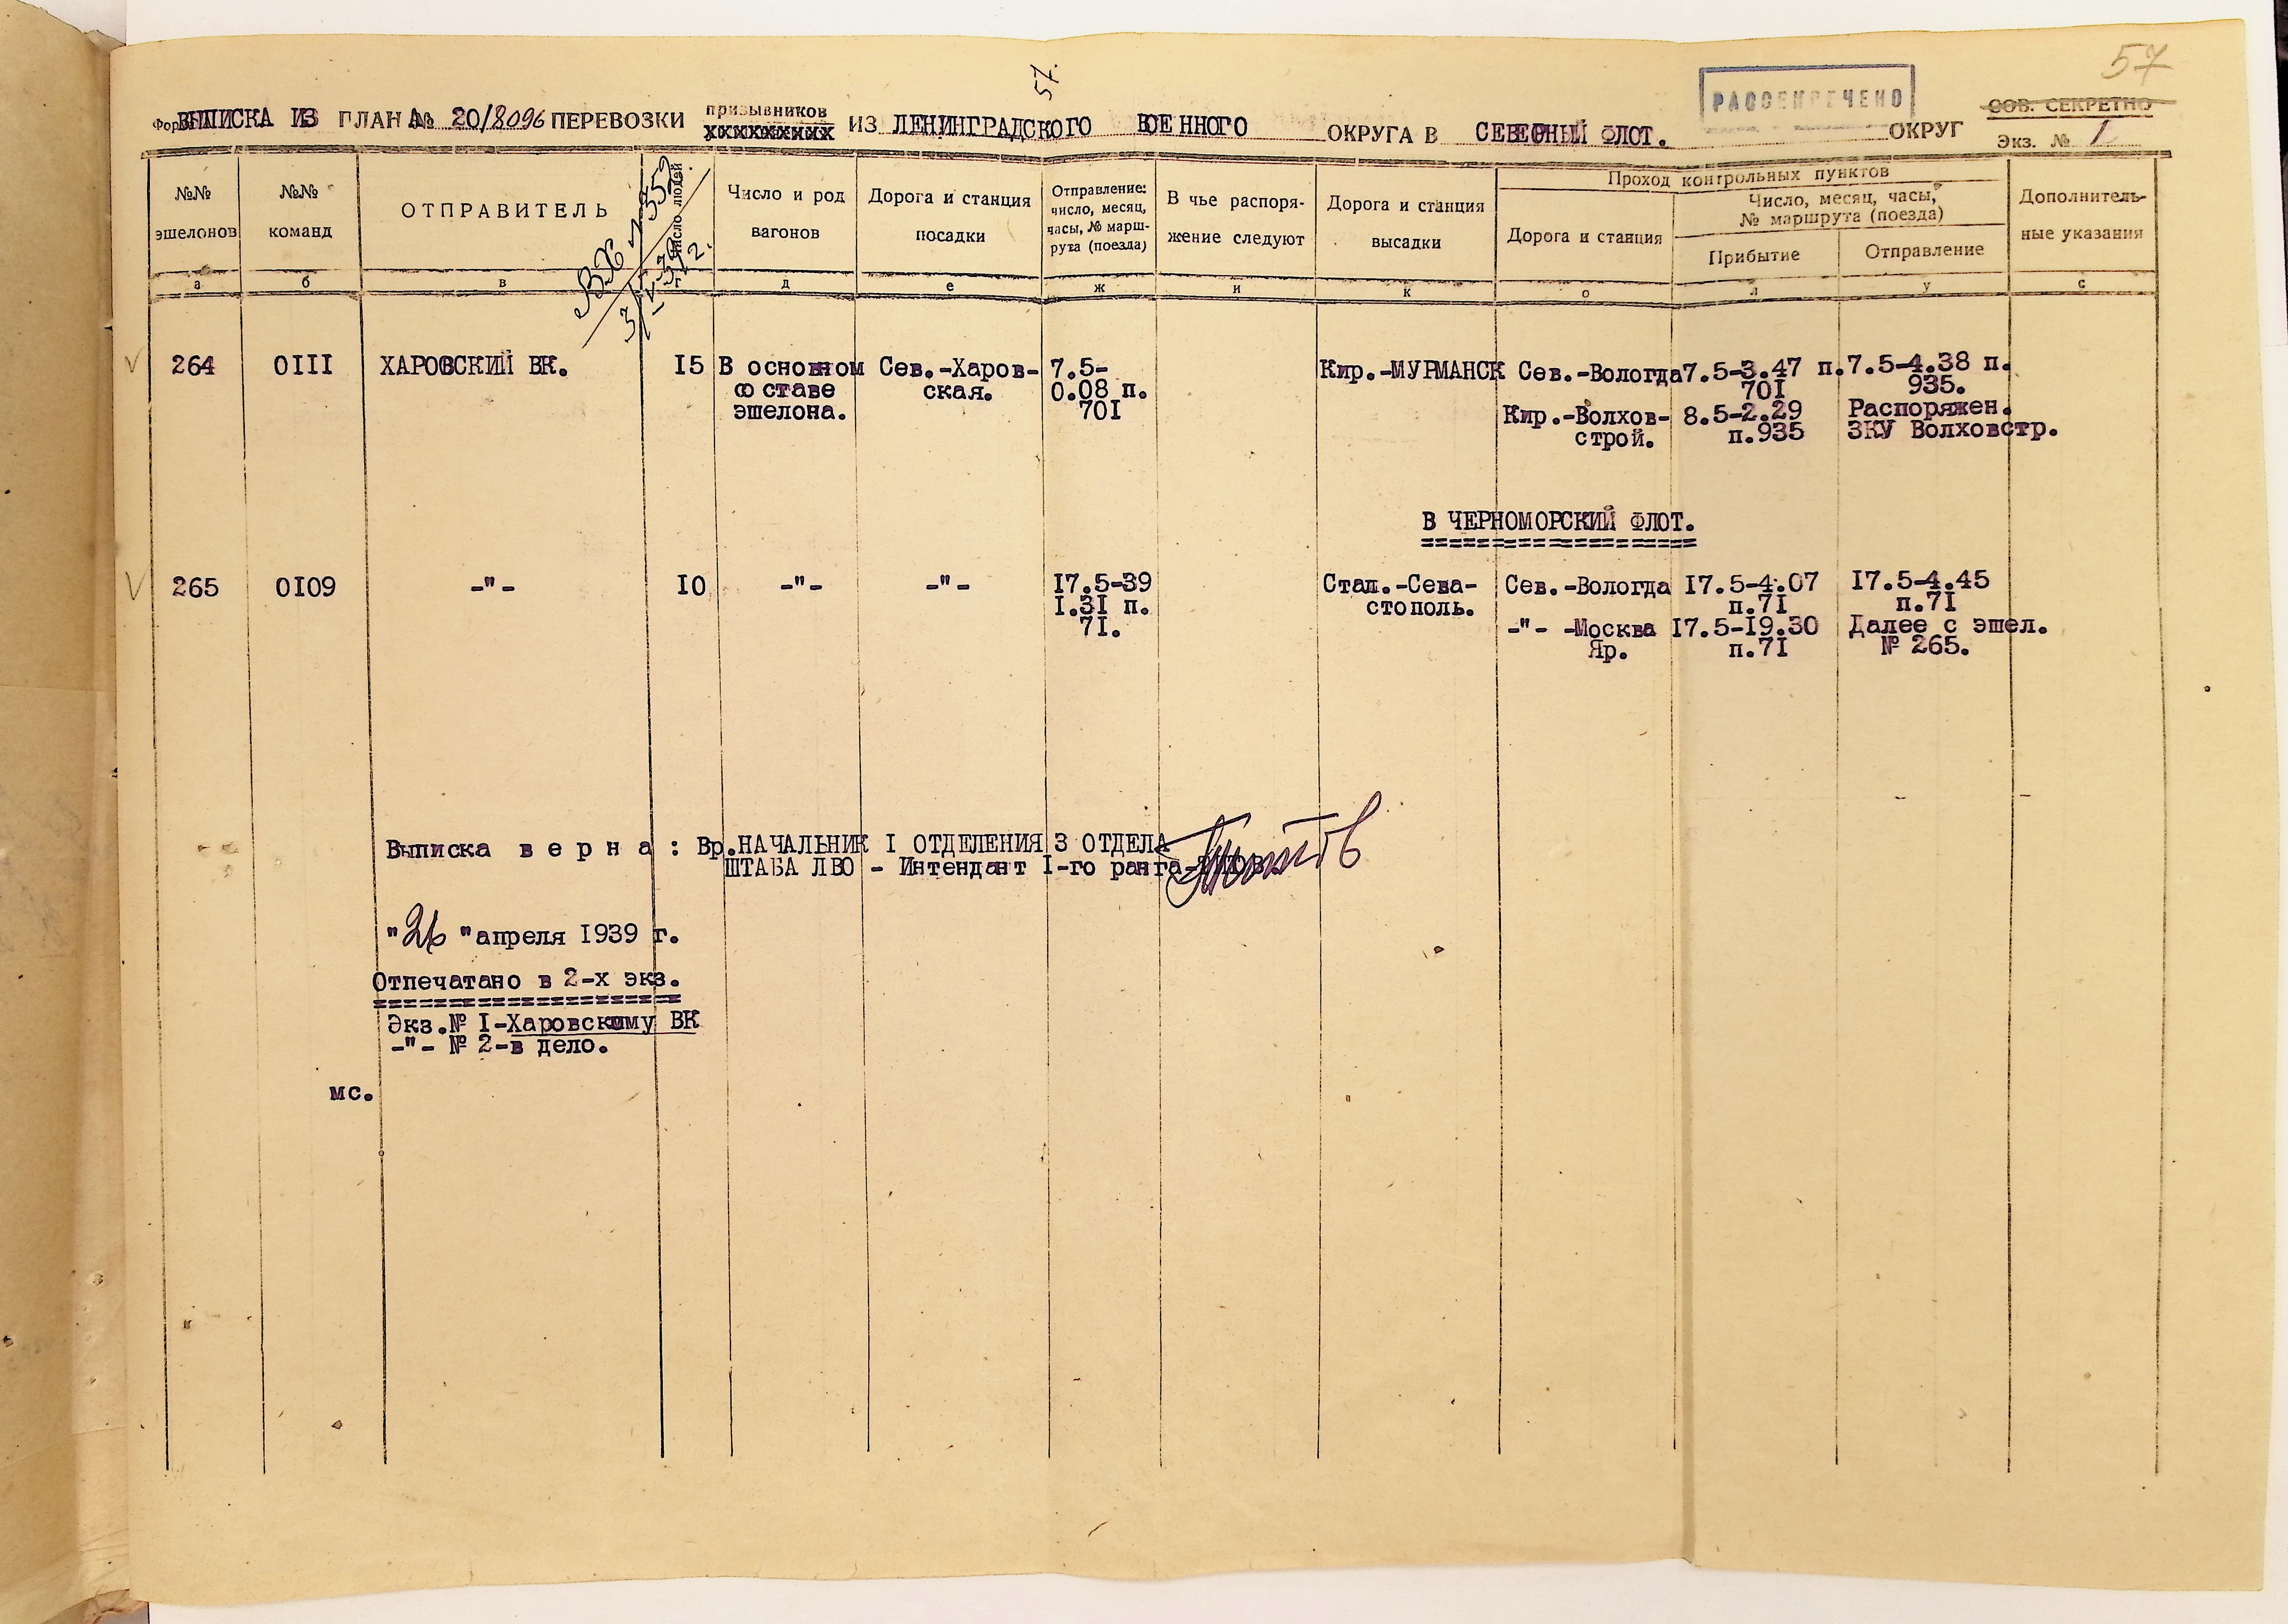 57
57.
РАССЕКРЕЧЕНО
СОВ. СЕКРЕТНО
Экз. № 1
ВЫПИСКА ИЗ ПЛАНА № 20/8096 ПЕРЕВОЗКИ призывников ИЗ ЛЕНИНГРАДСКОГО ВОЕННОГО ОКРУГА В СЕВЕРНЫЙ ФЛОТ. ОКРУГ
№№ эшелонов
№№ команд
ОТПРАВИТЕЛЬ
Число людей
Число и род вагонов
Дорога и станция посадки
Отправление: число, месяц, часы, № маршрута (поезда)
В чье распоряжение следуют
Дорога и станция высадки
Проход контрольных пунктов
Дорога и станция
Число, месяц, часы, № маршрута (поезда)
Прибытие
Отправление
Дополнительные указания
а б в г д е ж и к о л у с
264 0III ХАРОВСКИЙ ВК. I5 В основном Сев.-Харов- 7.5- Кир.-МУРМАНСК Сев.-Вологда 7.5-3.47 п. 7.5-4.38 п.
составе ская. 0.08 п. 70I 935.
эшелона. 70I Кир.-Волхов- 8.5-2.29 Распоряжен.
строй. п.935 ЗКУ Волховстр.
В ЧЕРНОМОРСКИЙ ФЛОТ.
265 0I09 -"- I0 -"- -"- I7.5-39 Стал.-Сева- Сев.-Вологда I7.5-4.07 I7.5-4.45
I.3I п. стополь. п.7I п.7I
7I. -"- -Москва I7.5-I9.30 Далее с эшел.
Яр. п.7I № 265.
Выписка в е р н а : Вр.НАЧАЛЬНИК I ОТДЕЛЕНИЯ 3 ОТДЕЛА
ШТАБА ЛВО - Интендант I-го ранга-
"26" апреля I939 г.
Отпечатано в 2-х экз.
Экз.№ I-Харовскому ВК
-"- № 2-в дело.
мс.